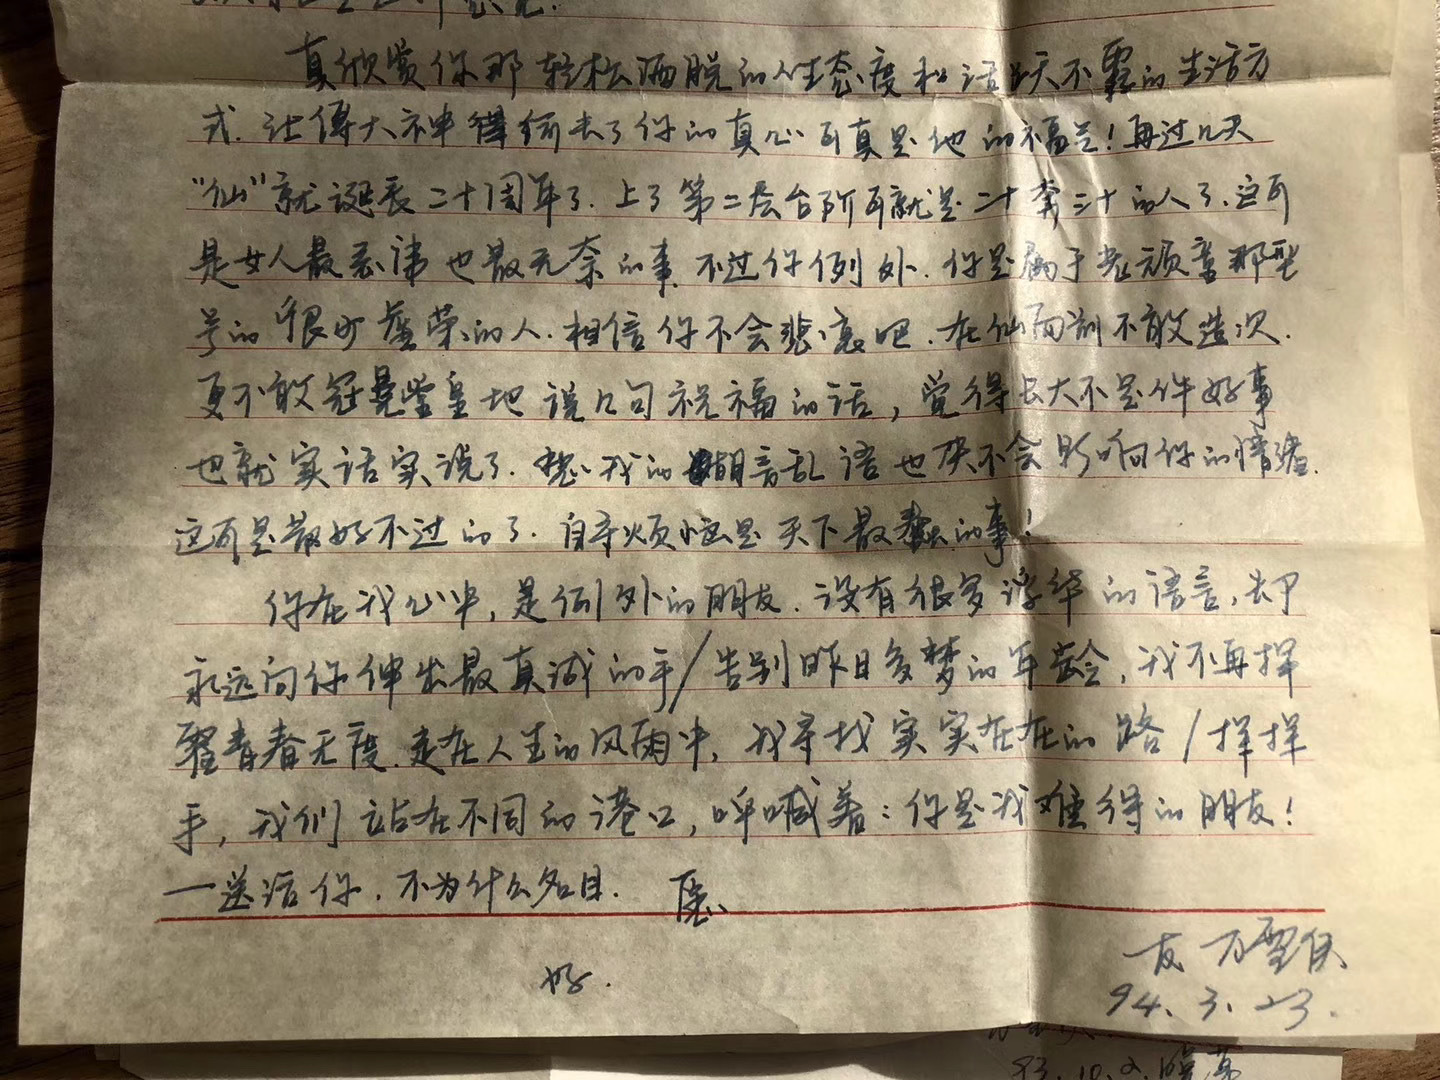 真欣赏你那轻松洒脱的人生态度和活天不露的生活方
式.让傅大神得何去了你的真心可真是他的福兰!再过几天
“仙”就诞辰二十周年了.上了第二层台阶可就是二十奔三十的人了.这可
是女人最忌讳也最无奈的事.不过你例外.你是属于老顽童那型
号的很少虚荣的人.相信你不会悲哀吧.在仙面前不敢造次.
更不敢冠晃堂皇地说几句祝福的话,觉得长大不是件好事
也就实话实说了.想必我的胡言乱语也决不会影响你的情绪.
这可是最好不过的了.自寻烦恼是天下最蠢的事!
你在我心中,是例外的朋友.没有很多浮华的语言,却
永远向你伸出最真诚的手/告别昨日多梦的年龄,我不再挥
霍青春无度.走在人生的风雨中,我寻找实实在在的路/挥挥
手,我们站在不同的港口,呼喊着:你是我难得的朋友!
—送给你.不为什么名目.
好.
友 万雪
94.3.23.
93.10.2.